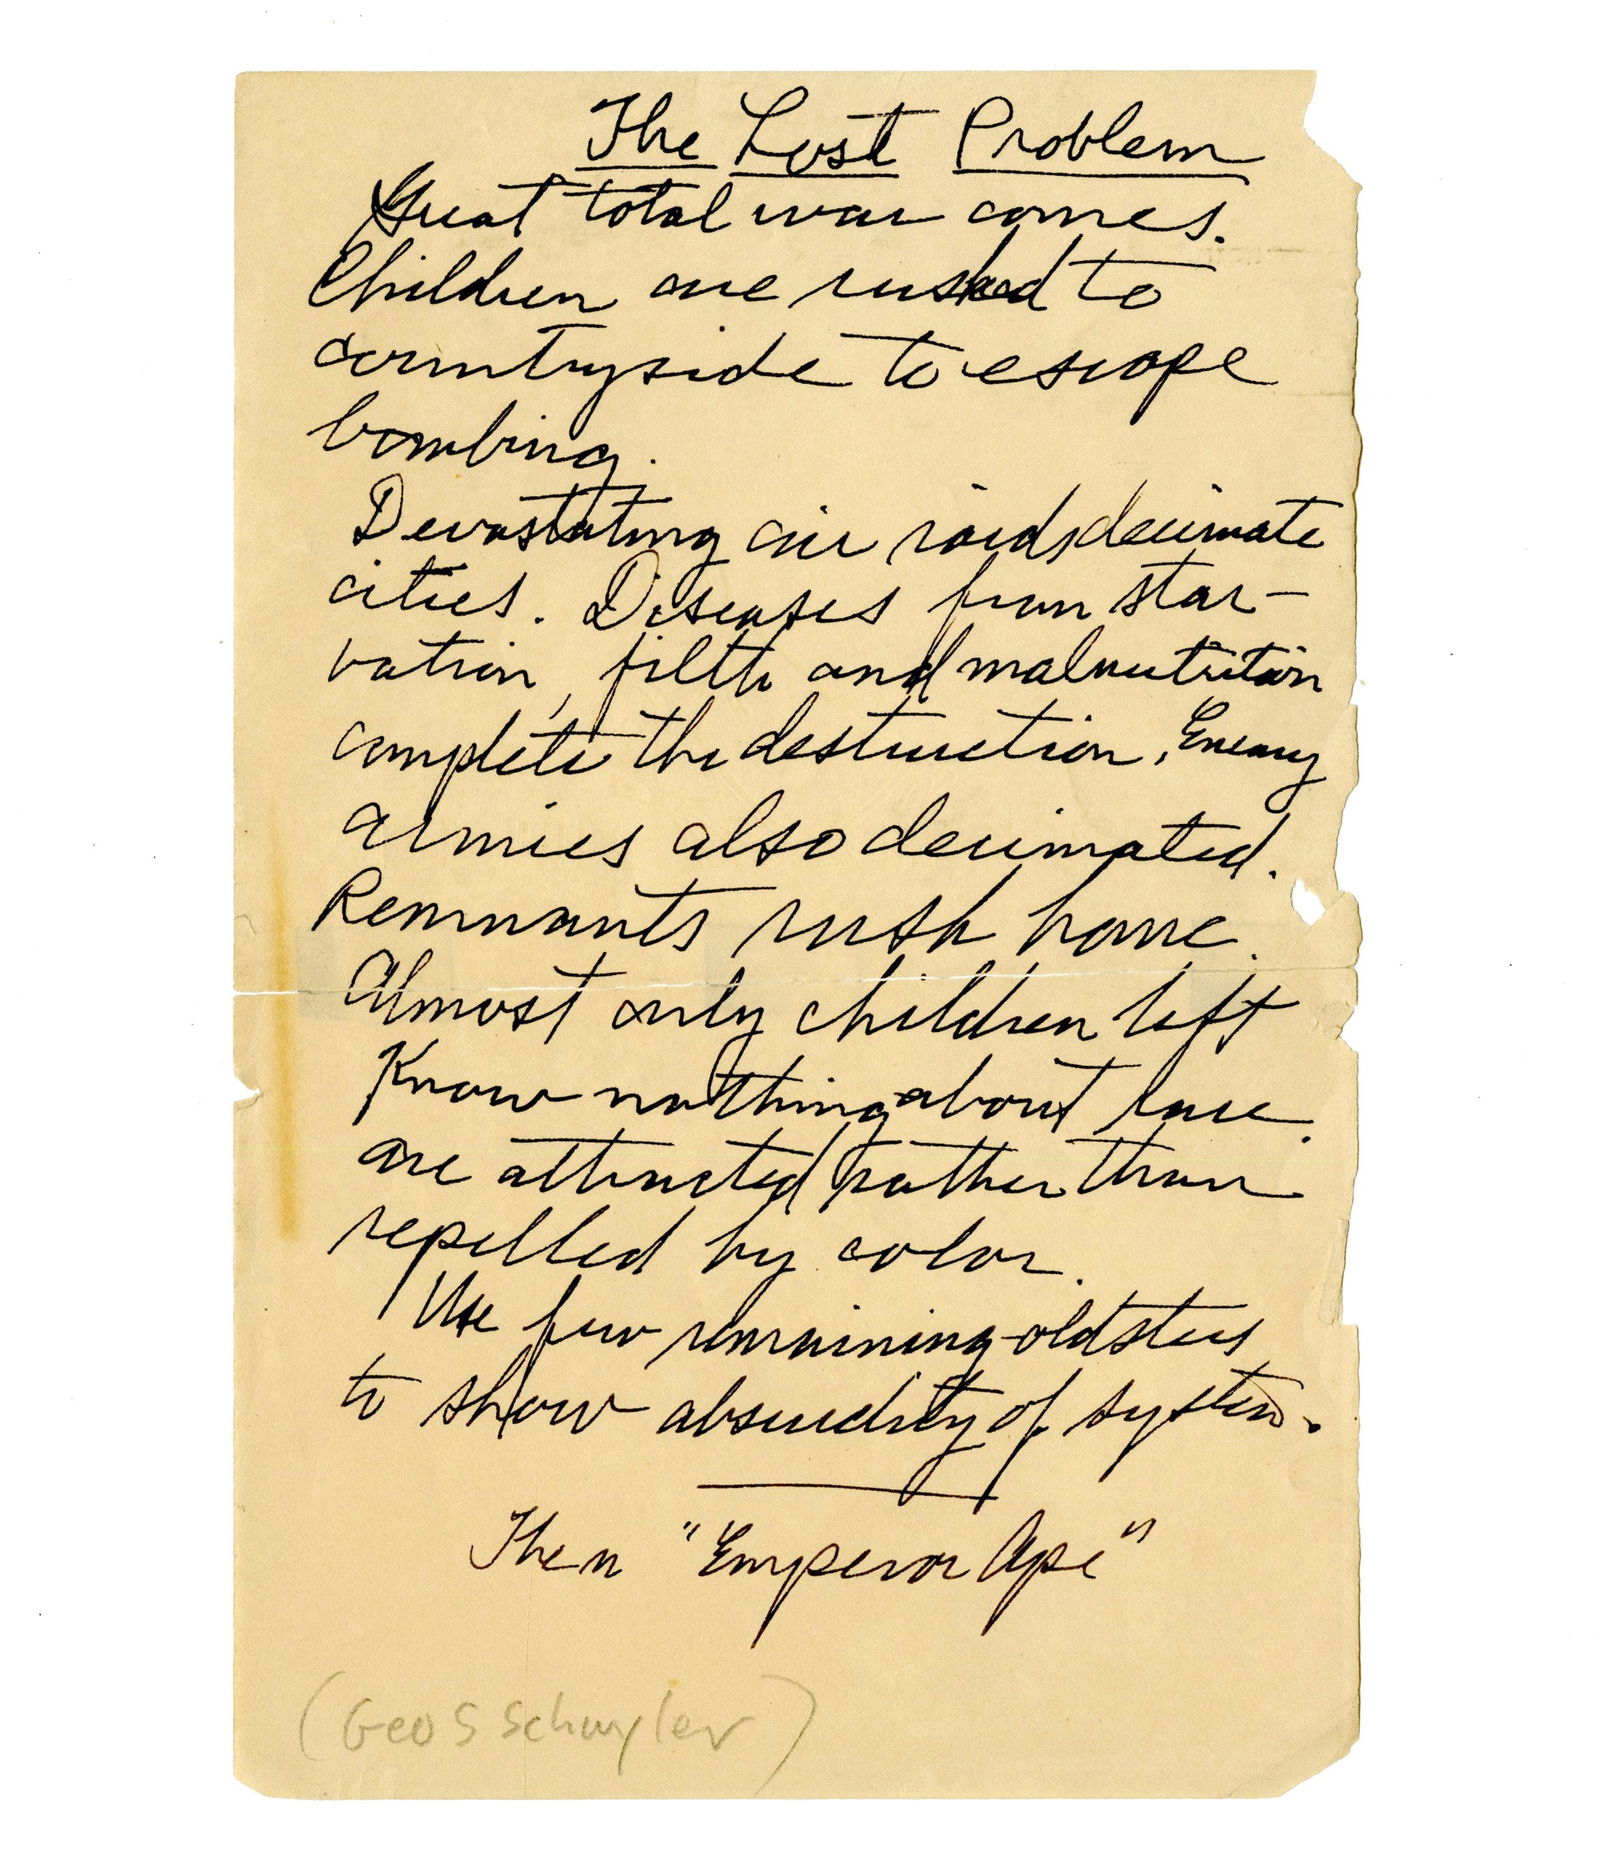 The Lost Problem
Great total war comes.
Children are rushed to
countryside to escape
bombing.
Devastating air raids decimate
cities. Diseases from star-
vation, filth and malnutrition
complete the destruction. Enemy
armies also decimated.
Remnants rush home.
Almost only children left
Know nothing about race.
are attracted rather than
repelled by color.
Use few remaining oldsters
to show absurdity of system.
Then "Emperor Ape"
(Geo S Schuyler)